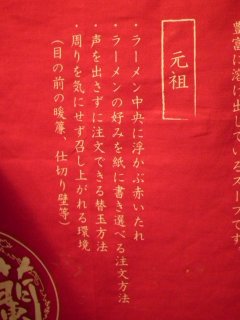 豊富に溶け出しているスープです
元祖
・ラーメン中央に浮かぶ赤いたれ
・ラーメンの好みを紙に書き選べる注文方法
・声を出さずに注文できる替玉方法
・周りを気にせず召し上がれる環境
（目の前の暖簾、仕切り壁等）
蘭